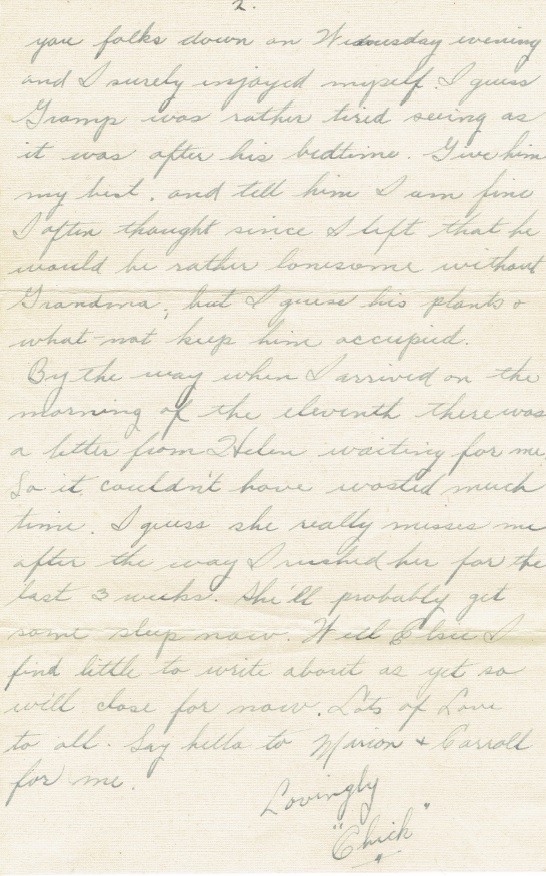 2.
you folks down on Wednesday evening
and I surely injoyed myself. I guess
Gramp was rather tired seeing as
it was after his bedtime. Give him
my best, and tell him I am fine
I often thought since I left that he
would be rather lonesome without
Grandma, but I guess his plants &
what-not keep him occupied.
By the way when I arrived on the
morning of the eleventh there was
a letter from Helen waiting for me.
So it couldn't have wasted much
time. I guess she really misses me
after the way I rushed her for the
last 3 weeks. She'll probably get
some sleep now. Well Elsie I
find little to write about as yet so
will close for now. Lots of Love
to all. Say hello to Mirion + Carroll
for me.
Lovingly
"Chick"